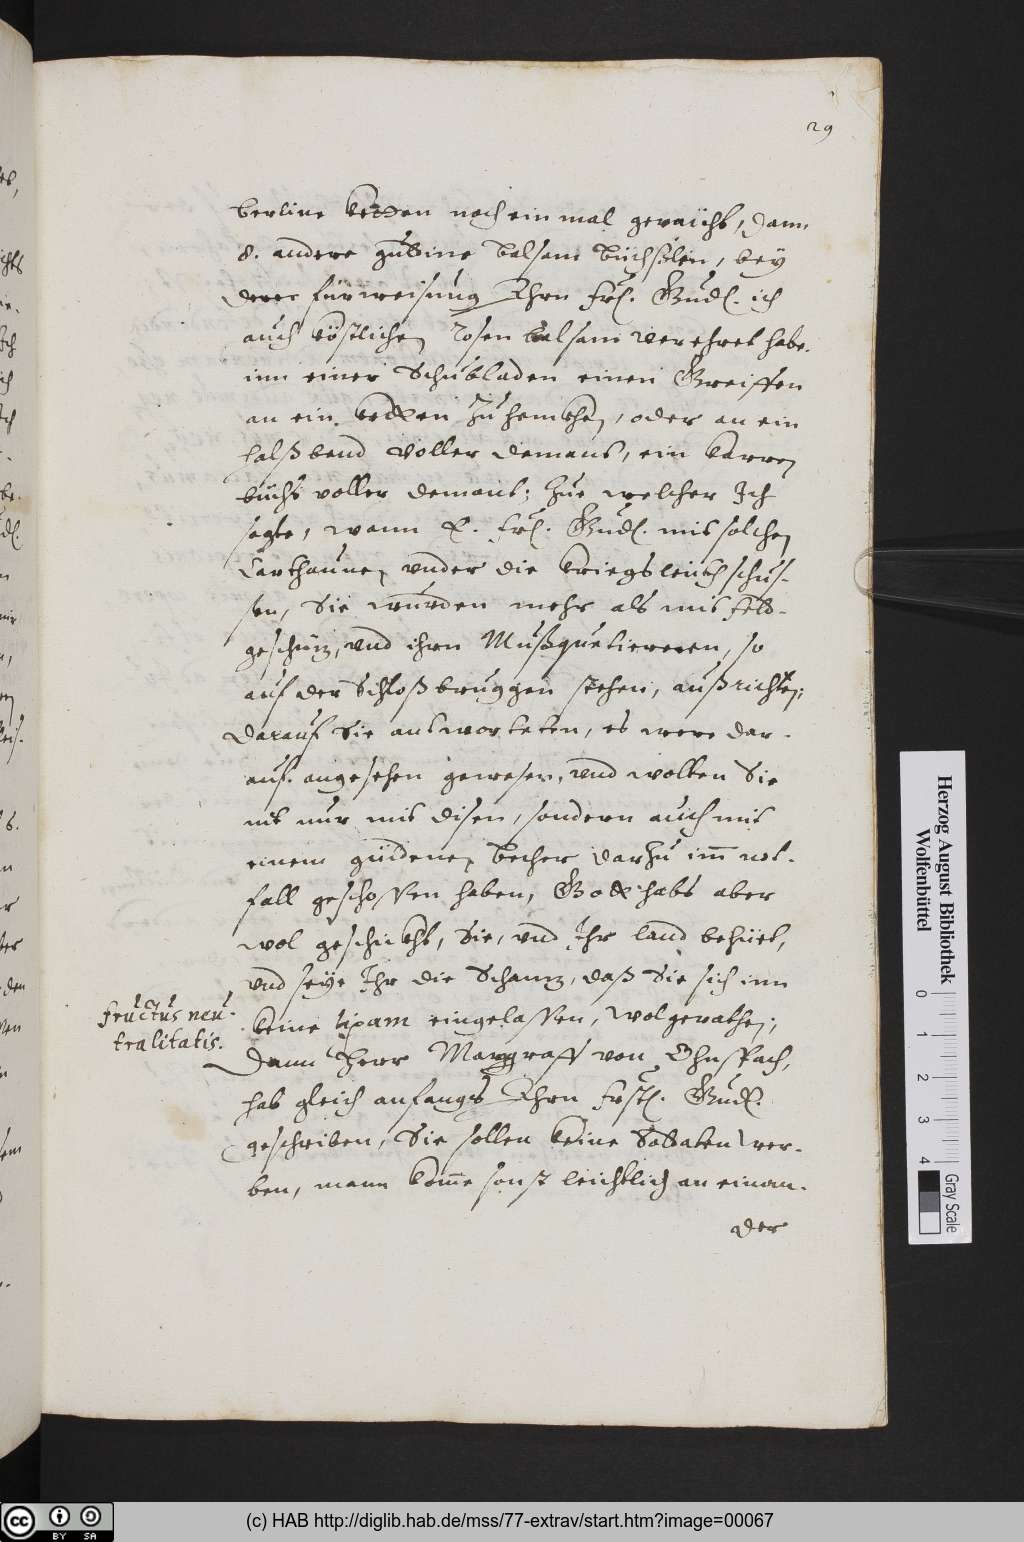 29
berline ketten noch ein mal geraücht, dann
8. andere guldine balsam büchslen, bey
derer fürweisung Ihrn Frl. Gndl. ich
auch köstlichen rosen balsam verehret habe.
inn einer Schubladen einen Greiffen
an ein ketten zu hencken, oder an ein
halßband voller demant, ein karren
büchs voller demant; zue welcher Ich
sagte, wann E. Frl. Gndl. mit solchen
Carthaunen under die kriegsleüth schus-
sen, Sie wurden mehr als mit feld-
geschüz, und ihrn Mußquetiereren, so
auf der Schloßbruggen stehen, außrichten;
darauf Sie antworteten, es were dar-
auf angesehen gewesen, und wolten Sie
nit nur mit disen, sondern auch mit
einem güldenen becher darzu im not-
fall geschossen haben, Gott habs aber
wol geschickht, Sie, und Ihr land behüet,
und seye Ihr die Schanz, daß Sie sich inn
keine ligam eingelassen, wol gerathen;
Dann Herr Marggraff von Ohnspach,
hab gleich anfangs Ihrn Frstl. Gndl.
geschriben, Sie sollen keine Soldaten wer-
ben, mann kome sonst leichtlich an einan-
der
fructus neu-
tralitatis.
Herzog August Bibliothek
Wolfenbüttel
0 1 2 3 4
Gray Scale
cc BY SA
(c) HAB http://diglib.hab.de/mss/77-extrav/start.htm?image=00067